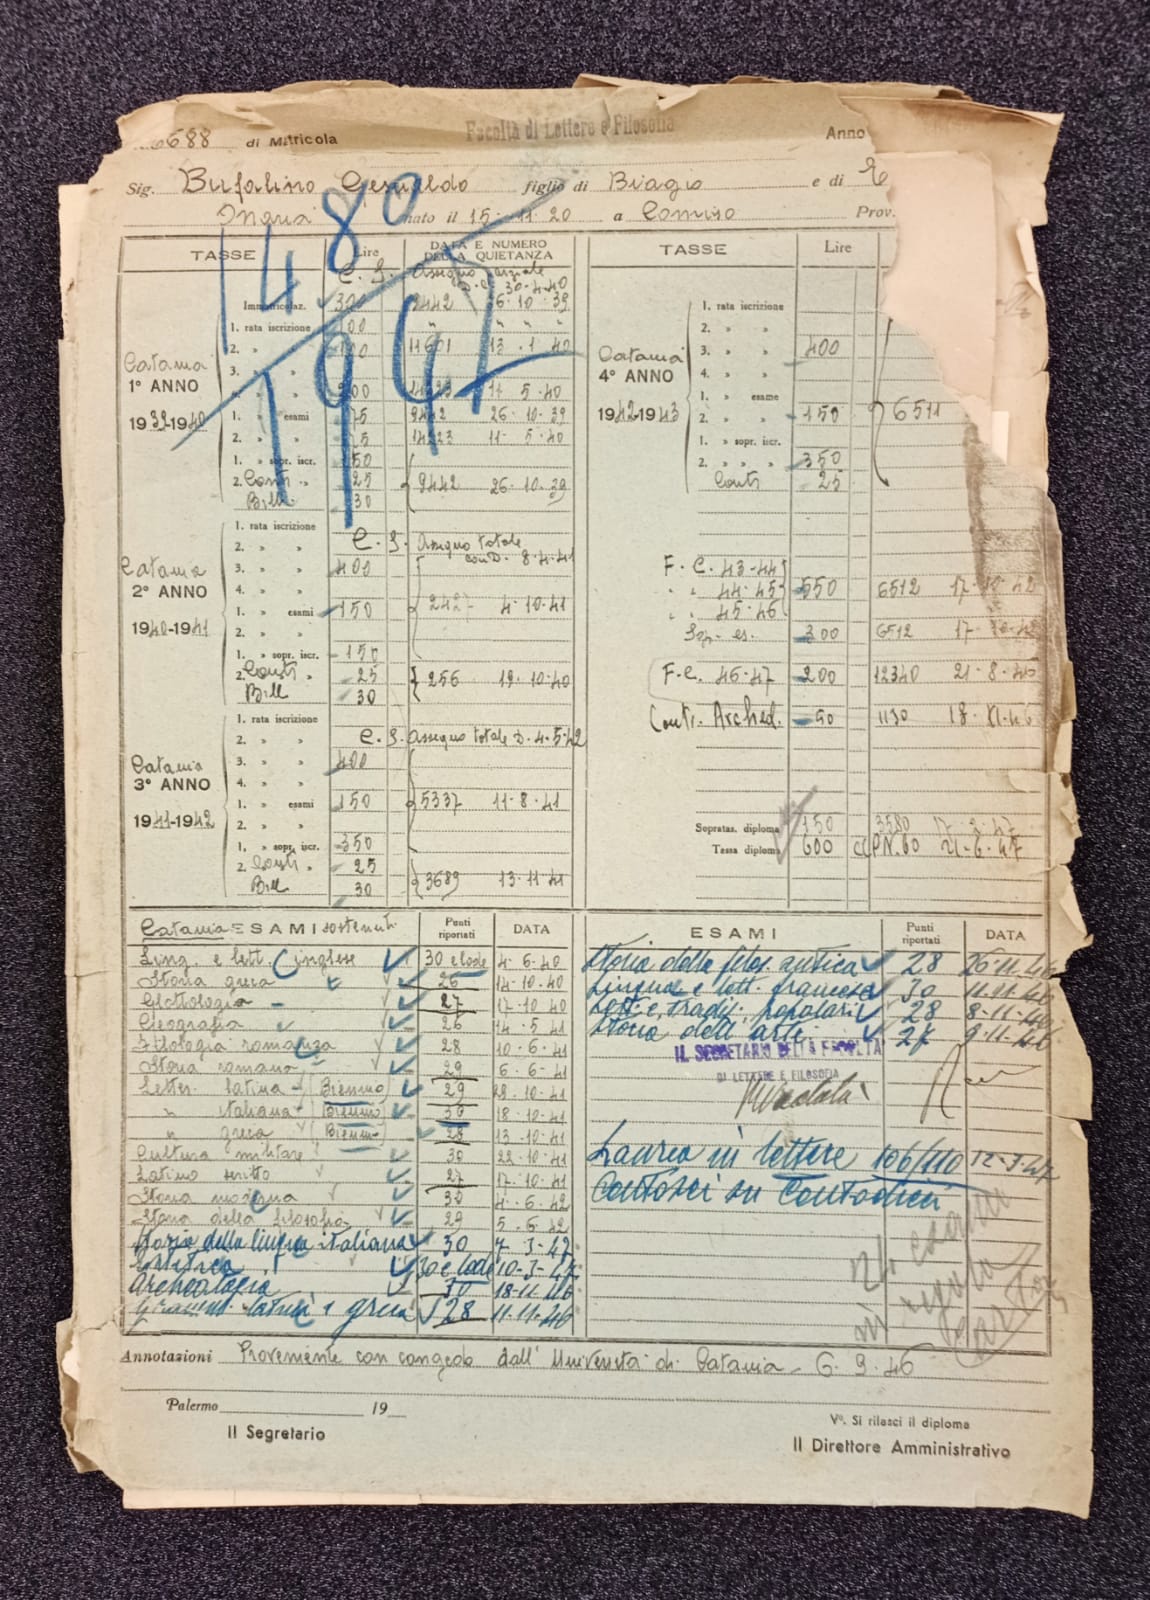 6688 di Matricola Facoltà di Lettere e Filosofia Anno
Sig. Bufalino Gesualdo figlio di Biagio e di
nato il 15-11-20 a Comiso Prov.
1480
1947
TASSE Lire DATA E NUMERO DELLA QUIETANZA
C. S. Assegno parziale
D. C. 30-4-40
Immatricolaz. 300 9442 26-10-39
1. rata iscrizione 100 " " "
2. » » 100 11601 13-1-40
3. » »
4. » » 200 14223 11-5-40
Catania
1° ANNO
1939-1940
1. » esami 75 9442 26-10-39
2. » » 75 14223 11-5-40
1. » sopr. iscr. 50
2. Conti » 25 9442 26-10-39
Bill. 30
1. rata iscrizione C. S. Assegno totale
2. » » con D. 8-4-41
3. » » 400
4. » »
Catania
2° ANNO
1940-1941
1. » esami 150 2427 4-10-41
2. » »
1. » sopr. iscr. 150
2. Conti 25 256 19-10-40
Bill 30
1. rata iscrizione
2. » » C. S. Assegno totale D. 4-5-42
3. » » 400
4. » »
Catania
3° ANNO
1941-1942
1. » esami 150 5337 11-8-41
2. » »
1. » sopr. iscr. 350
2. Conti » 25 3689 13-11-41
Bill 30
TASSE Lire
1. rata iscrizione
2. » »
3. » » 400
4. » »
Catania
4° ANNO
1942-1943
1. » esame
2. » » 150 6511
1. » sopr. iscr.
2. » » » 350
Conti 25
F. C. 43-44
" " 44-45 550 6512 17-10-42
" " 45-46
Sop. es. 300 6512 17-10-42
F. C. 46-47 200 12340 21-8-46
Conti. Arched. 50 1130 18-XI-46
Sopratas. diploma 150 3580
Tassa diploma 600 CCPN. 60 21-6-47
Catania ESAMI sostenuti Punti riportati DATA
Ling. e lett. inglese 30 e lode 4-6-40
Storia greca 26 14-10-40
Glottologia 27 17-10-40
Geografia 26 14-5-41
Filologia romanza 28 10-6-41
Storia romana 29 6-6-41
Letter. latina (Biennio) 29 22-10-41
" italiana (Biennio) 30 18-10-41
" greca (Biennio) 28 13-10-41
Cultura militare 30 22-10-41
Latino scritto 27 17-10-41
Storia moderna 30 4-6-42
Storia della filosofia 29 5-6-42
Storia della lingua italiana 30 7-3-47
Estetica 30 e lode 10-3-47
Archeologia 30 18-11-46
Gramm. latina e greca 28 11-11-46
ESAMI Punti riportati DATA
Storia della filos. antica 28 26-11-46
Lingua e lett. francese 30 11-11-46
Lett. e tradiz. popolari 28 8-11-46
Storia dell'arte 27 9-11-46
IL SEGRETARIO DELLA FACOLTA'
DI LETTERE E FILOSOFIA
Laurea in lettere 106/110 12-3-47
Centosei su Centodieci
21 esami
in regola
Annotazioni Proveniente con congedo dall'Università di Catania - 6-9-46
Palermo 19
Il Segretario
V°. Si rilasci il diploma
Il Direttore Amministrativo